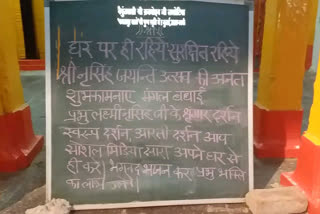 घर पर ही रहिये सुरक्षित रहिये
श्री नृसिंह जयन्ति उत्सव की अनंत
शुभकामनाए मंगल बधाई
प्रभु लक्ष्मीनृसिंह जी के श्रृंगार दर्शन
स्वरूप दर्शन, आरती दर्शन आप
सोशल मिडिया द्वारा अपने घर से
ही करे। भगवद भजन करे प्रभु भक्ति
का लाभ